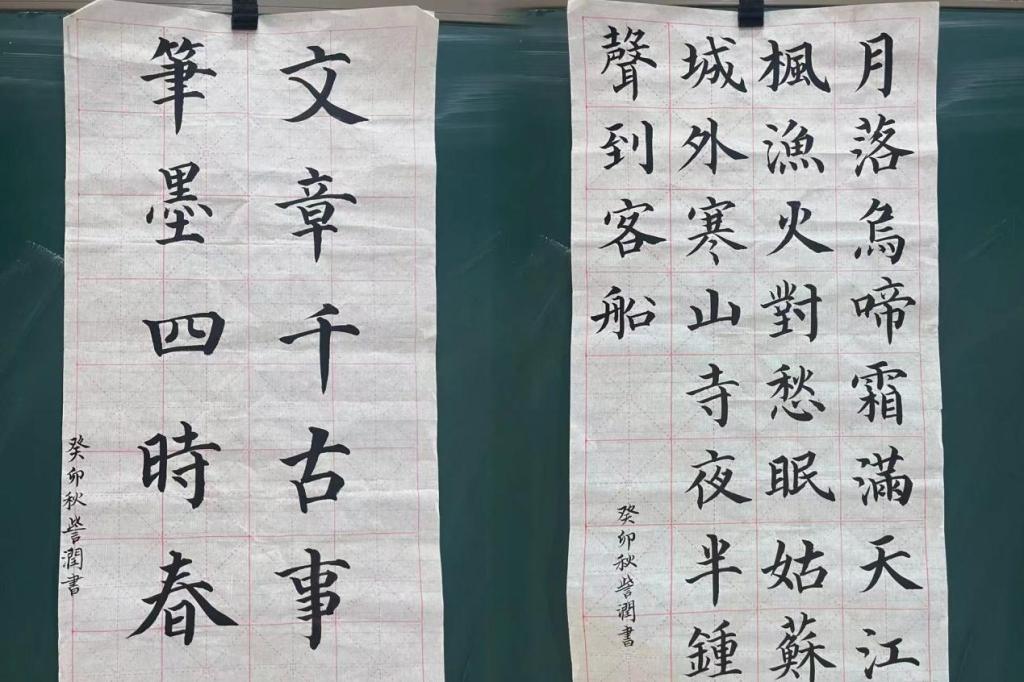 文章千古事
筆墨四時春
癸卯秋訾潤書
月落烏啼霜滿天江
楓漁火對愁眠姑蘇
城外寒山寺夜半鍾
聲到客船
癸卯秋訾潤書